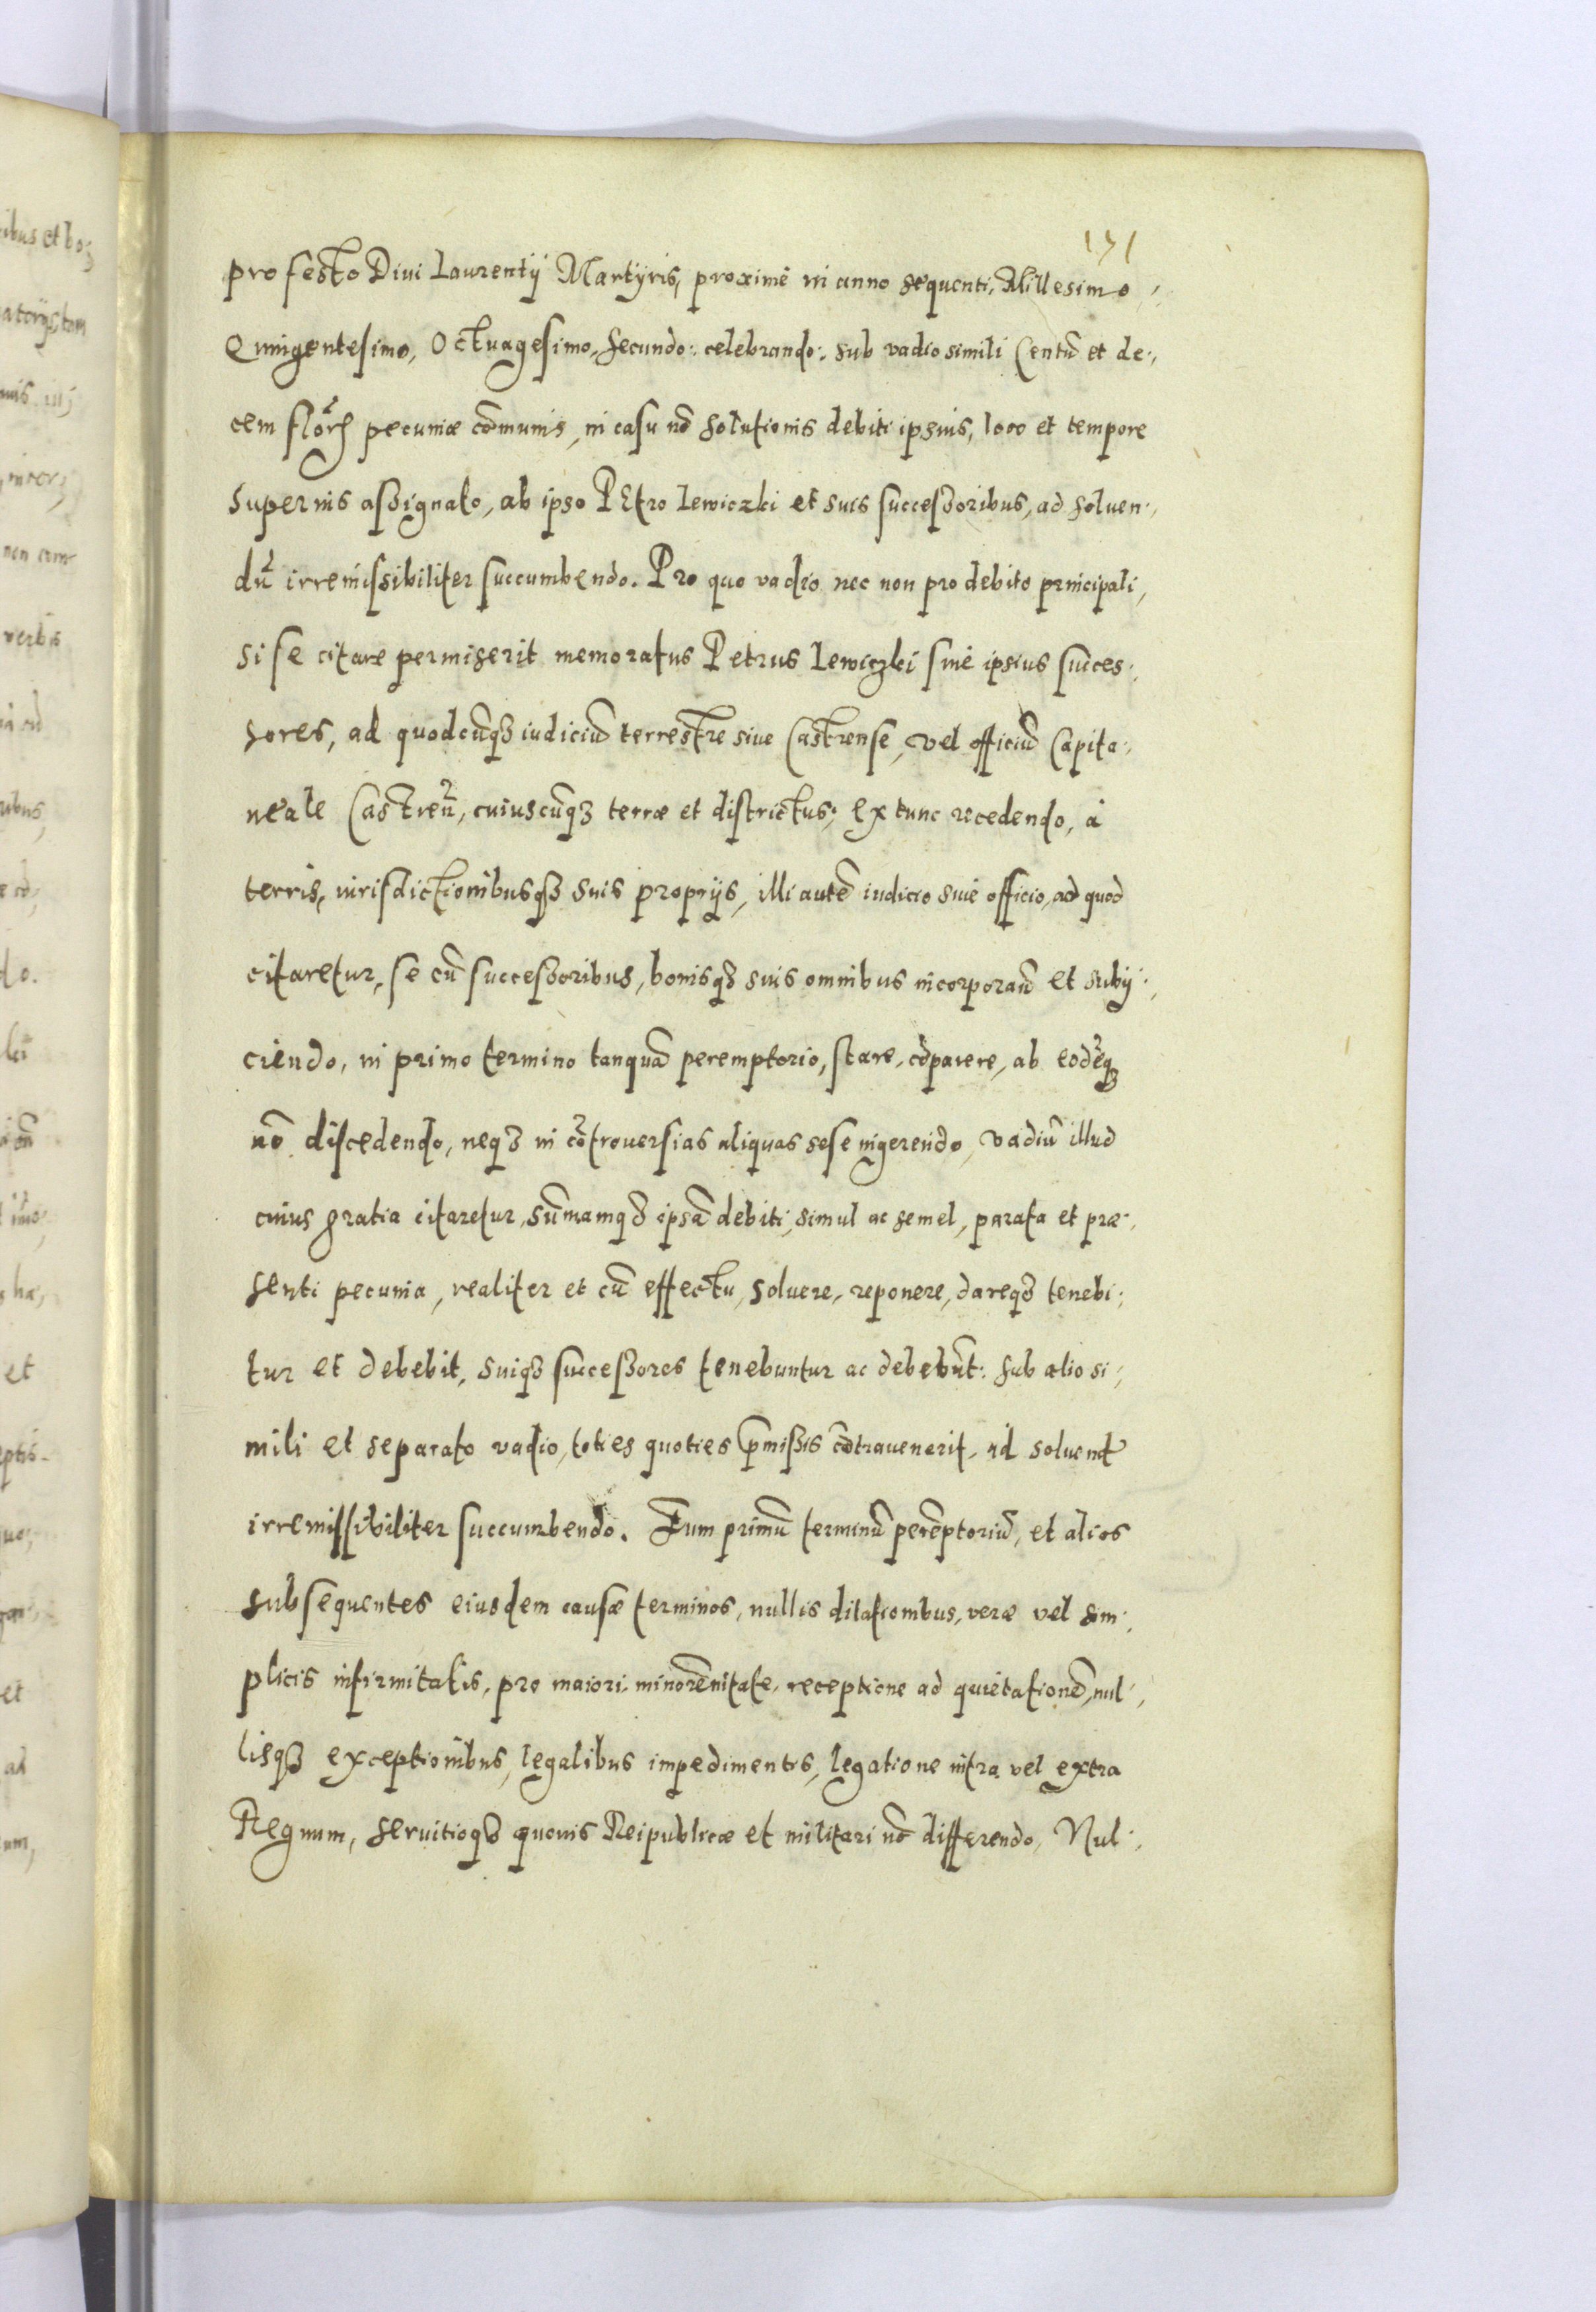 171
pro festo Diui Laurentÿ Martÿris, proximè in anno sequenti, Millesimo,
Quingentesimo, Octuagesimo, secundo: celebrando: sub vadio simili Centū et de:,
cem flor pecuniæ cōmunis, in casu nō solutionis debiti ipsius, loco et tempore
superius assignato, ab ipso PEtro Lewiczki et suis successoribus, ad soluen:,
dū irremissibiliter succumbendo. Pro quo vadio nec non pro debito principali,
si se citare permiserit memoratus Petrus Lewiczki siue ipsius succes:,
sores, ad quodcūq3 iudiciū terrestre siue Castrense, vel officiū Capita:,
neale Castreñ, cuiuscūq3 terræ et districtus, ex tunc recedendo, à
terris, iurisdictionibusq3 suis proprÿs, illi autē iudicio siue officio, ad quod
citaretur, se cū successoribus, bonisq3 suis omnibus incorporañ et subÿ:,
ciendo, in primo termino tanquā peremptorio, stare, cōparere, ab eodēq3
nō discedendo, neq3 in cōtrouersias aliquas sese ingerendo, vadiū illud
cuius gratia citaretur, sūmamq3 ipsā debiti, simul ac semel, parata et præ:,
senti pecunia, realiter et cū effectu, soluere, reponere, dareq3 tenebi:,
tur et debebit, suiq3 successores tenebuntur ac debebūt: sub alio si:,
mili et separato vadio, toties quoties p̄missis cōtrauenerit, ad soluend
irremissibiliter succumbendo. Tum primū terminū perēptoriū, et alios
subsequentes eiusdem causæ terminos, nullis dilationibus, veræ vel sim:,
plicis infirmitatis, pro maiori, minorēnitate, receptione ad quietationē, nul:,
lisq3 exceptionibus, legalibus impedimentis, legatione intra vel extra
Regnum, seruitioq3 quouis Reipublicæ et militari nō differendo, Nul:,